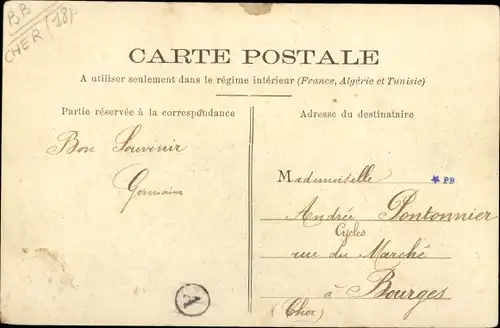 BB
CHER (18)
CARTE POSTALE
A utiliser seulement dans le régime intérieur (France, Algérie et Tunisie)
Partie réservée à la correspondance
Adresse du destinataire
Bon Souvenir
Germaine
Mademoiselle
★ PB
Andrée Pontonnier
Cycles
rue du Marché
à Bourges
(Cher)
A